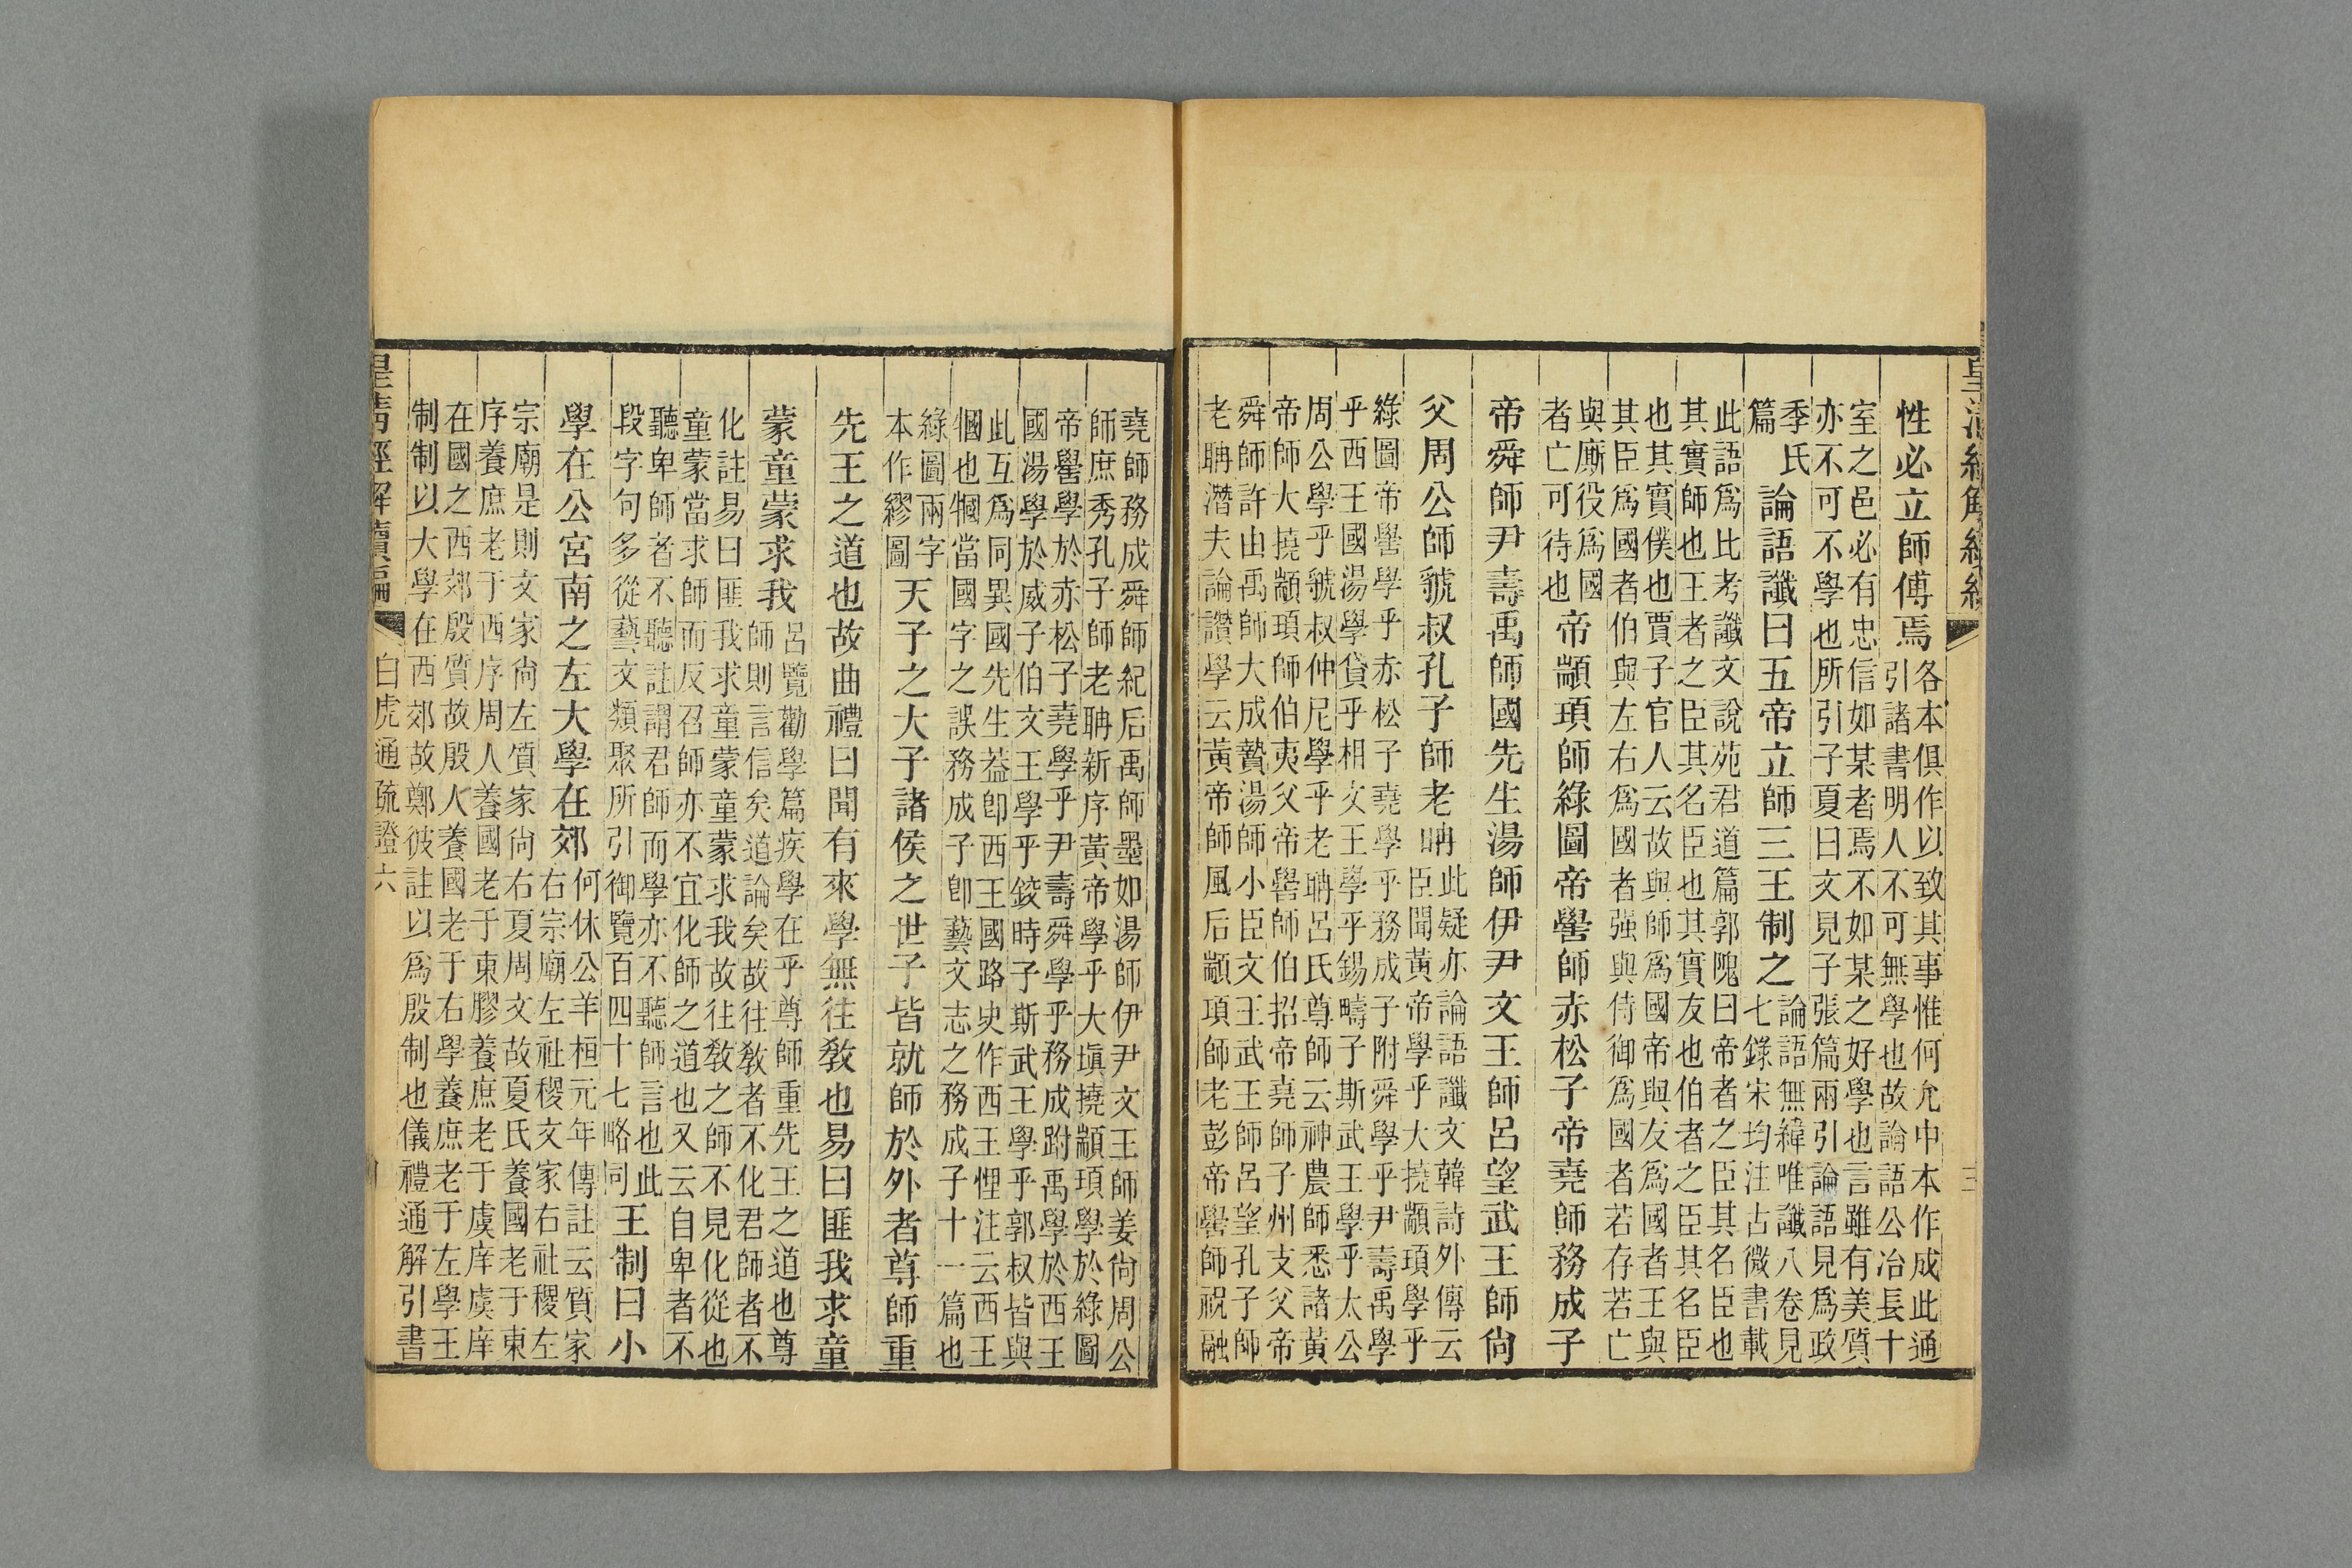 皇清經解續編
三
性必立師傅焉
各本俱作以致其事惟何允中本作成此通
引諸書明人不可無學也故論語公冶長十
室之邑必有忠信如某者焉不如某之好學也言雖有美質
亦不可不學也所引子夏曰文見子張篇兩引論語見爲政
季氏
篇
論語讖曰五帝立師三王制之
論語無緯唯讖八卷見
七錄宋均注古微書載
此語爲比考讖文說苑君道篇郭隗曰帝者之臣其名臣也
其實師也王者之臣其名臣也其實友也伯者之臣其名臣
也其實僕也賈子官人云故與師爲國帝與友爲國者王與
其臣爲國者伯與左右爲國者强與侍御爲國者若存若亡
與厮役爲國
者亡可待也
帝顓頊師綠圖帝嚳師赤松子帝堯師務成子
帝舜師尹壽禹師國先生湯師伊尹文王師呂望武王師尙
父周公師虢叔孔子師老聃
此疑亦論語讖文韓詩外傳云
臣聞黃帝學乎大撓顓頊學乎
綠圖帝嚳學乎赤松子堯學乎務成子附舜學乎尹壽禹學
乎西王國湯學貸乎相文王學乎錫疇子斯武王學乎太公
周公學乎虢叔仲尼學乎老聃呂氏尊師云神農師悉諸黃
帝師大撓顓頊師伯夷父帝嚳師伯招帝堯師子州支父帝
舜師許由禹師大成贄湯師小臣文王武王師呂望孔子師
老聃潛夫論讚學云黃帝師風后顓頊師老彭帝嚳師祝融
堯師務成舜師紀后禹師墨如湯師伊尹文王師姜尙周公
師庶秀孔子師老聃新序黃帝學乎大塡撓顓頊學於綠圖
帝嚳學於赤松子堯學乎尹壽舜學乎務成跗禹學於西王
國湯學於威子伯文王學乎鉸時子斯武王學乎郭叔皆與
此互爲同異國先生葢卽西王國路史作西王悝注云西王
慖也慖當國字之誤務成子卽藝文志之務成子十一篇也
綠圖兩字
本作繆圖
天子之大子諸侯之世子皆就師於外者尊師重
先王之道也故曲禮曰聞有來學無往敎也易曰匪我求童
蒙童蒙求我
呂覽勸學篇疾學在乎尊師重先王之道也尊
師則言信矣道論矣故往敎者不化君師者不
化註易曰匪我求童蒙童蒙求我故往敎之師不見化從也
童蒙當求師而反召師亦不宜化師之道也又云自卑者不
聽卑師者不聽註謂君師而學亦不聽師言也此
段字句多從藝文類聚所引御覽百四十七略同
王制曰小
學在公宮南之左大學在郊
何休公羊桓元年傳註云質家
右宗廟左社稷文家右社稷左
宗廟是則文家尙左質家尙右夏周文故夏氏養國老于東
序養庶老于西序周人養國老于東膠養庶老于虞庠虞庠
在國之西郊殷質故殷人養國老于右學養庶老于左學王
制制以大學在西郊故鄭彼註以爲殷制也儀禮通解引書
皇清經解續編
白虎通疏證六